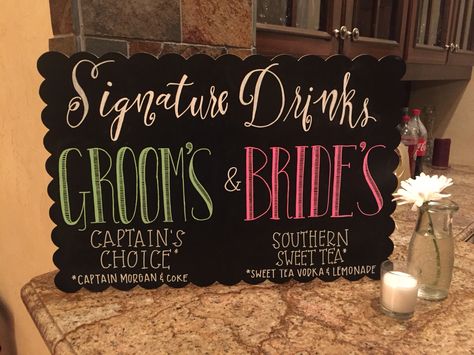 Signature Drinks
GROOM'S & BRIDE'S
CAPTAIN'S
CHOICE*
*CAPTAIN MORGAN & COKE
SOUTHERN
SWEET TEA*
*SWEET TEA VODKA & LEMONADE